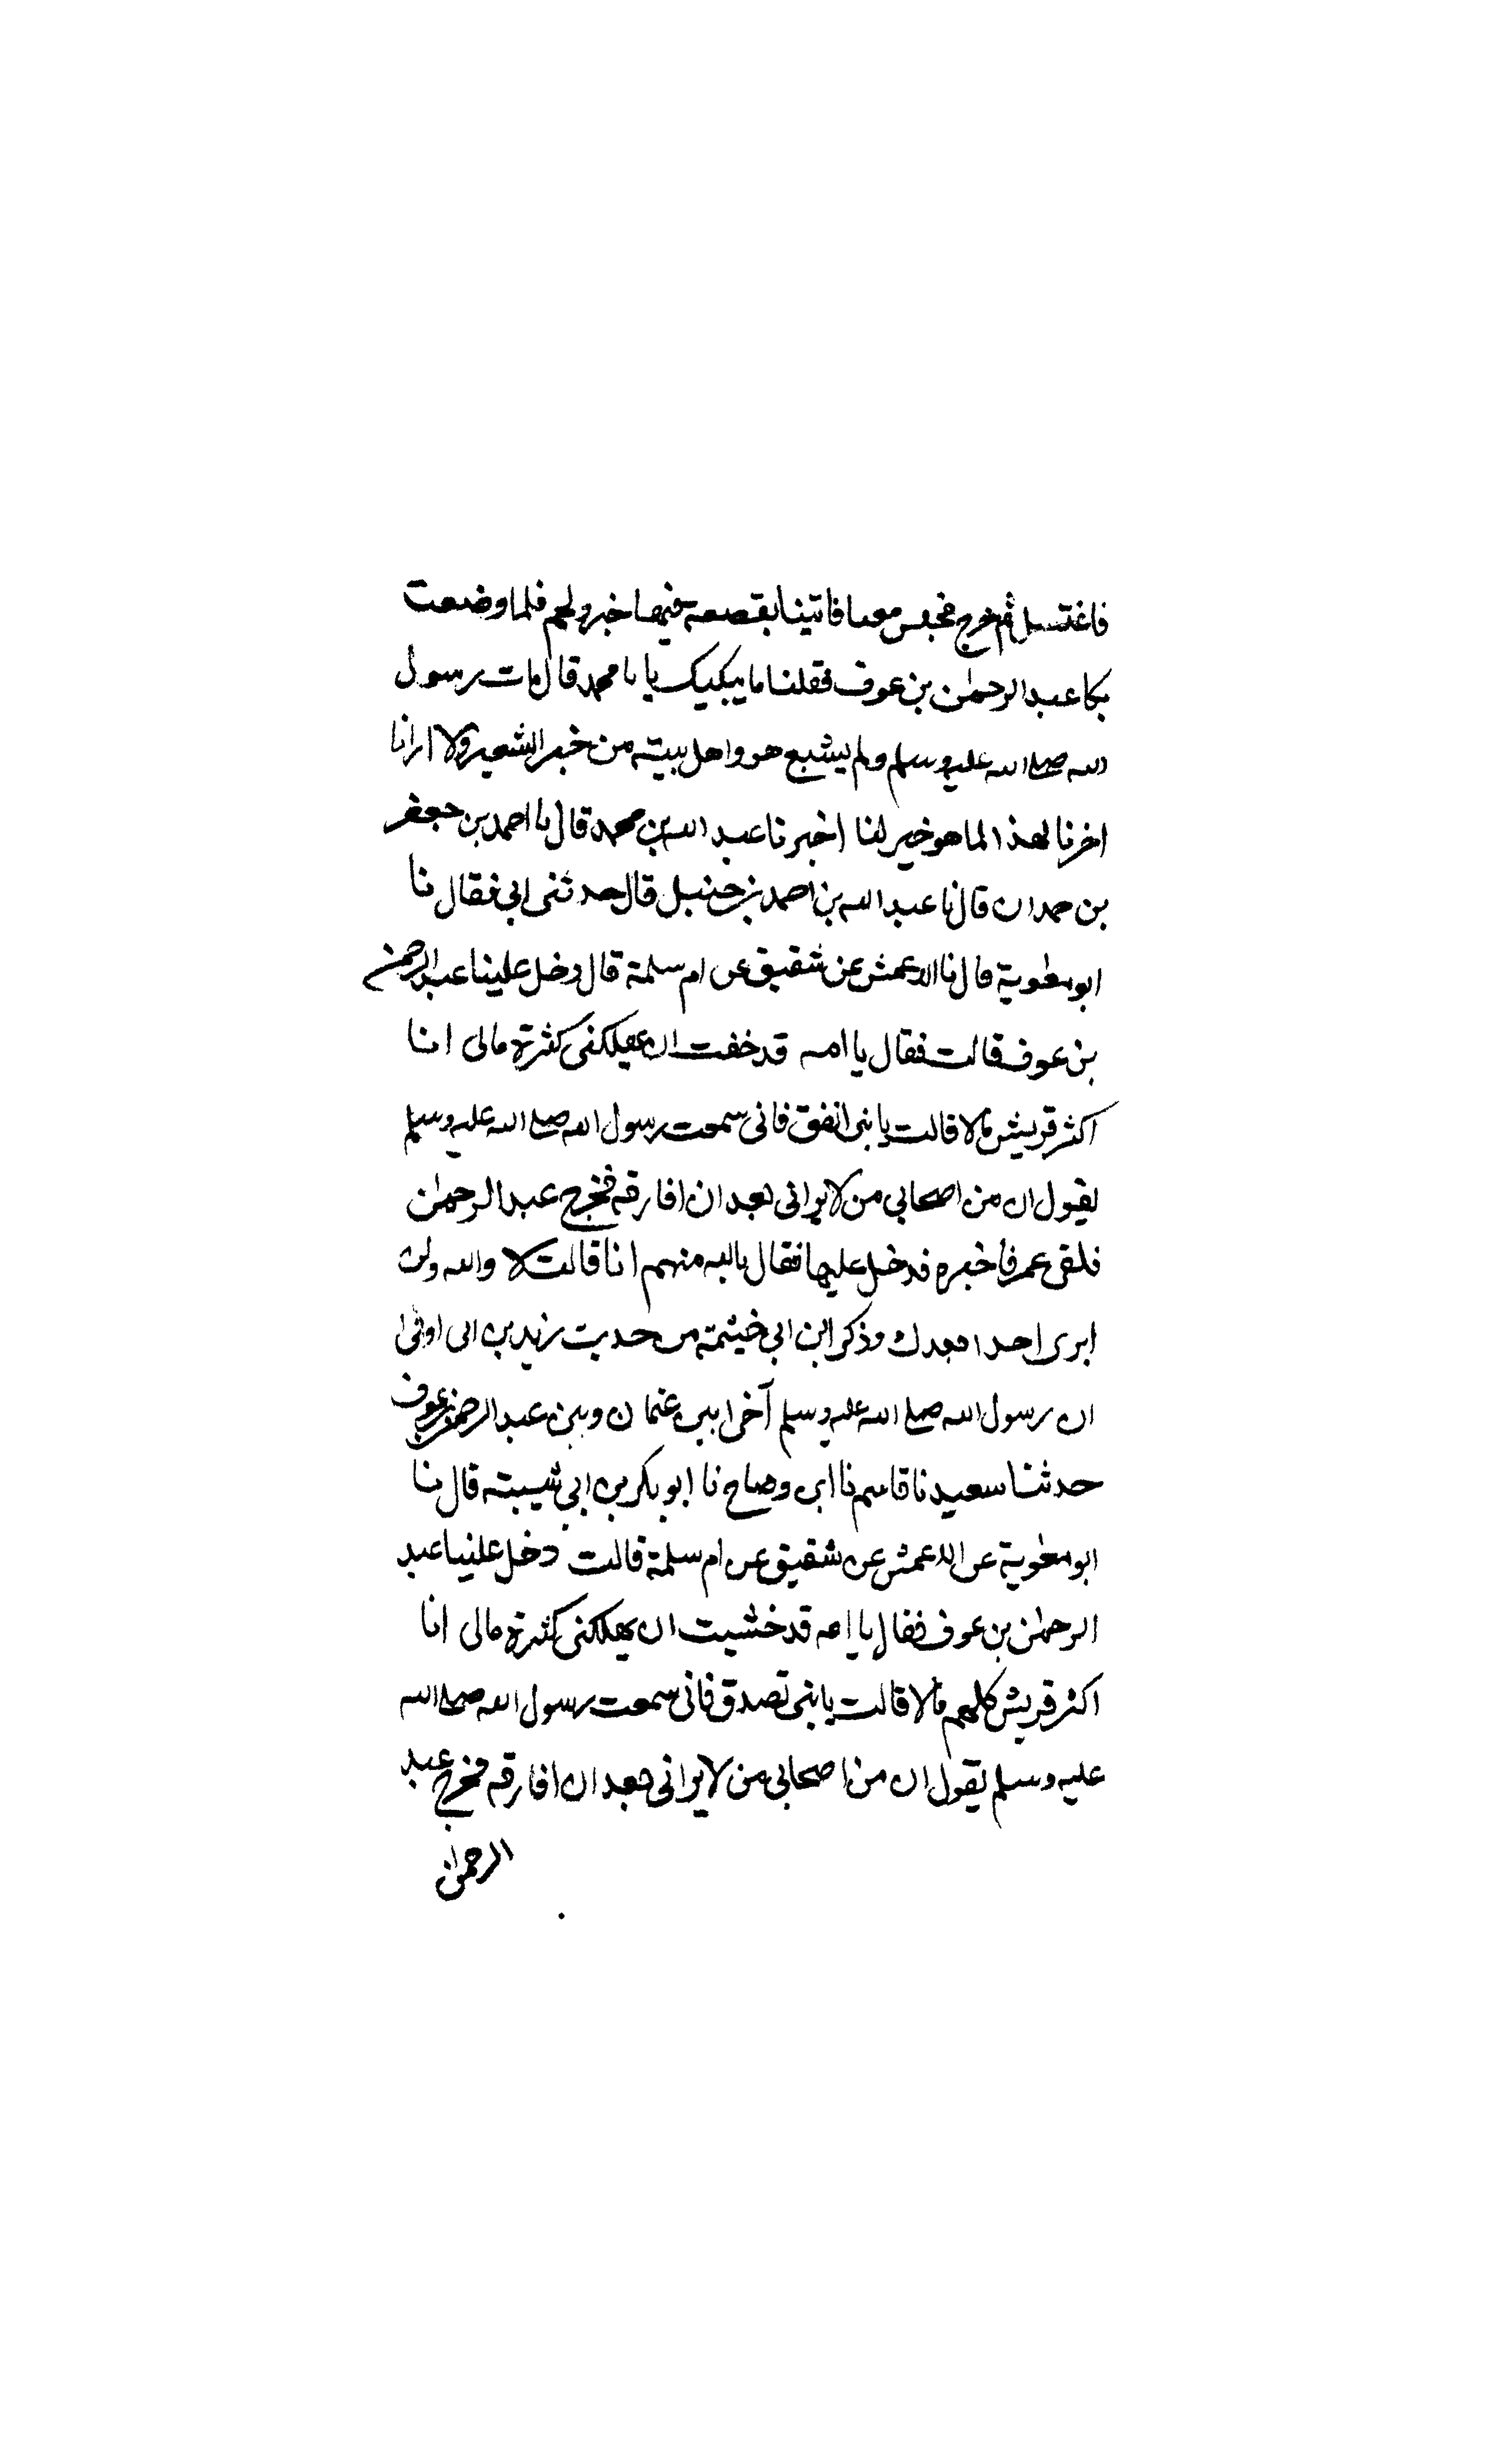 فاغتسل ثم خرج فجلس معنا فاتينا بقصعة فيها خبز ولحم فلما وضعت
بكا عبد الرحمن بن عوف فقلنا ما يبكيك يا با محمد قال مات رسول
الله صلى الله عليه وسلم ولم يشبع هو واهل بيته من خبز الشعير ولا ارانا
اخرنا لهذا لما هو خير لنا اخبرنا عبد الله بن محمد قال نا احمد بن جعفر
بن حمدان قال نا عبد الله بن احمد بن حنبل قال حدثنى ابى فقال نا
ابو معوية قال نا الاعمش عن شقيق عن ام سلمة قال دخل علينا عبد الرحمن
بن عوف قالت فقال يا امه قد خفت ان يهلكنى كثرة مالى انا
اكثر قريش مالا قالت يا بنى انفق فانى سمعت رسول الله صلى الله عليه وسلم
يقول ان من اصحابي من لا يرانى بعد ان افارقه فخرج عبد الرحمن
فلقى عمر فاخبره فدخل عليها فقال بالله منهم انا قالت لا والله ولن
ابرى احدا بعدك وذكر ابن ابي خيثمة من حديث زيد بن ابى اوفى
ان رسول الله صلى الله عليه وسلم آخى بين عثمان وبين عبد الرحمن بن عوف
حدثنا سعيد نا قاسم نا ابن وضاح نا ابو بكر بن ابي شيبة قال نا
ابو معوية عن الاعمش عن شقيق عن ام سلمة قالت دخل علينا عبد
الرحمن بن عوف فقال يا امه قد خشيت ان يهلكنى كثرة مالى انا
اكثر قريش كلهم مالا قالت يا بنى تصدق فانى سمعت رسول الله صلى الله
عليه وسلم يقول ان من اصحابي من لا يرانى بعد ان افارقه فخرج عبد
الرحمن